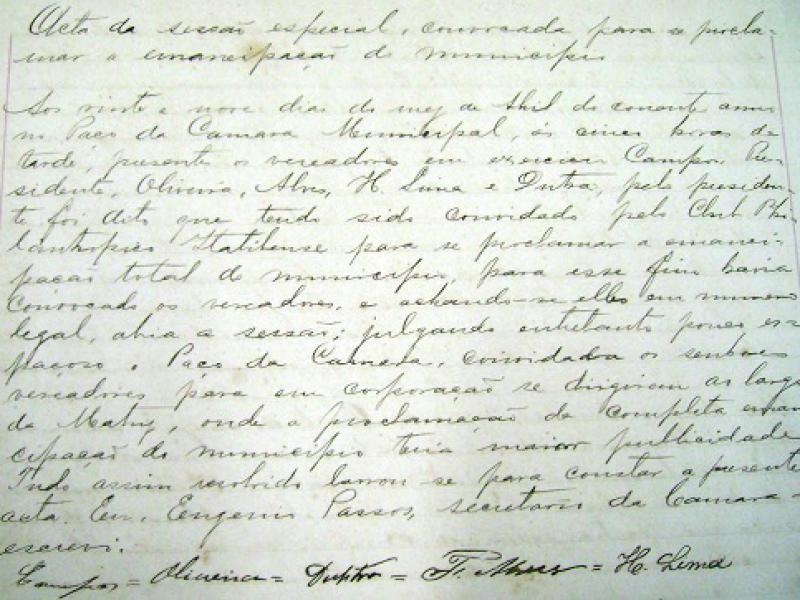 Acta da sessão especial, convocada, para se procla-
mar a emancipação do municipio
Aos vinte e nove dias do mez de Abril do corrente anno
no Paço da Camara Municipal, ás cinco horas da
tarde, presente os vereadores em exercicio Campos, Pre-
sidente, Oliveira, Alves, H. Lima e Dutra, pelo presiden-
te foi dito que tendo sido convidado pelo Club Phi-
lantropico Itatibense para se proclamar a emanci-
pação total do municipio, para esse fim havia
convocado os vereadores, e achando-se elles em numero
legal, abria a sessão; julgando entretanto pouco es-
paçoso o Paço da Camara, convidava os senhores
vereadores para em corporação se dirigirem ao largo
da Matriz, onde a proclamação da completa eman
cipação do municipio teria maior publicidade
Tudo assim resolvido lavrou-se para constar a presente
acta. Eu, Eugenio Passos, secretario da Camara
escrevi.
Campos = Oliveira = Dutra = F. Alves = H. Lima